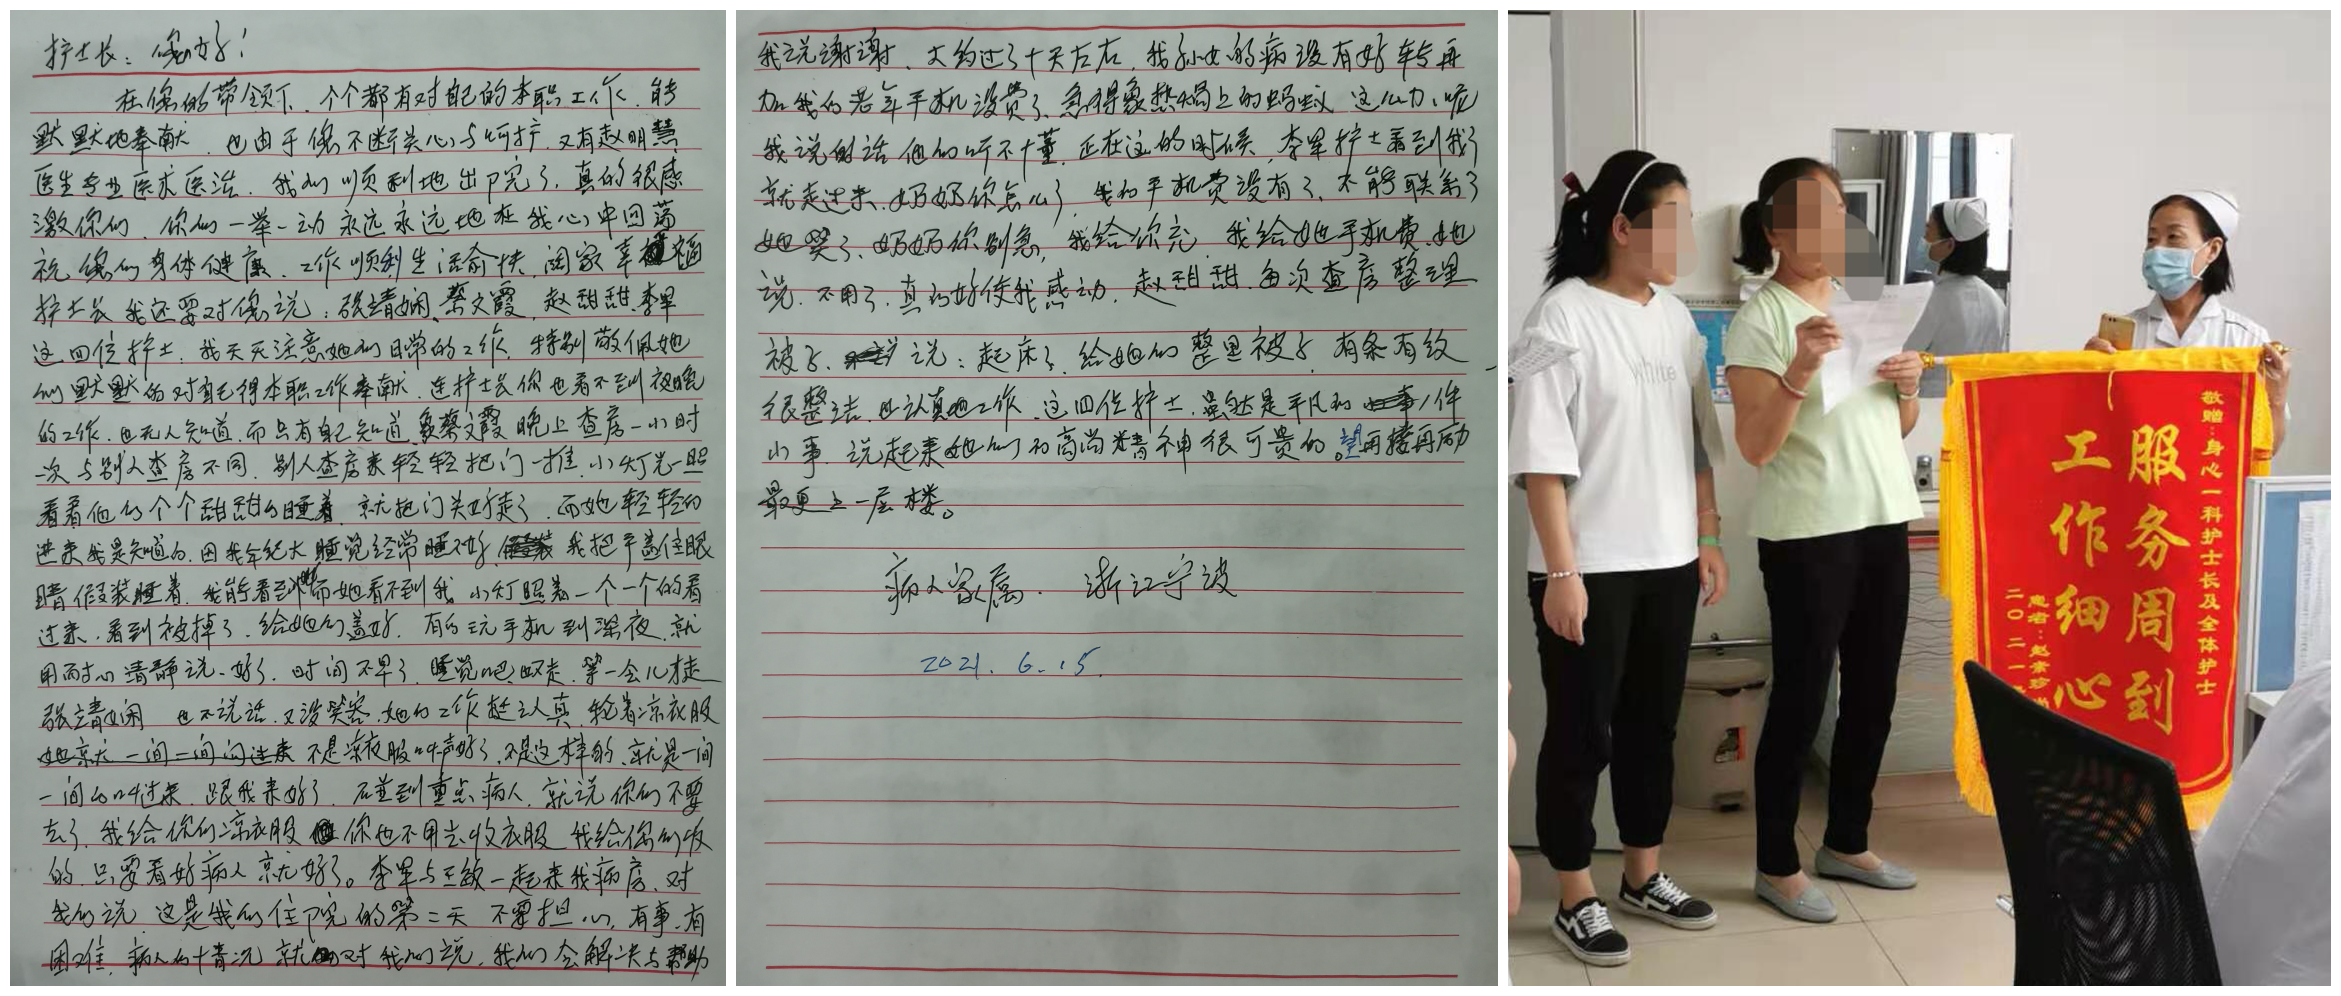 护士长：您好！
在您的带领下，个个都有对自己的本职工作，能
默默地奉献，也由于您不断关心与呵护，又有赵明慧
医生专业医术医治，我们顺利地出院了，真的很感
激你们，你们一举一动永远永远地在我心中回荡
祝您们身体健康、工作顺利生活俞快，阖家幸福
护士长我还要对您说：张靖娴、蔡文霞，赵甜甜、李军
这四位护士，我天天注意她们日常的工作，特别敬佩她
们默默的对自己得本职工作奉献，连护士长你也看不到夜晚
的工作，也无人知道，而只有自己知道，象蔡文霞晚上查房一小时
一次与别人查房不同，别人查房来轻轻把门一推，小灯光一照
看着他们个个甜甜的睡着，就把门关好走了，而她轻轻的
进来我是知道的，因我年纪大睡觉经常睡不好，我把手盖住眼
睛假装睡着，我能看到她而她看不到我，小灯照着一个一个的看
过来，看到被掉了，给她们盖好，有的玩手机到深夜，就
用耐心清静说、好了，时间不早了，睡觉吧，等一会儿才走
张靖娴 也不说话，又没笑容，她的工作挺认真，轮着凉衣服
她就一间一间问过来 不是凉衣服叫声好了，不是这样的，就是一间
一间的叫过来，跟我来好了，碰到重点病人，就说你们不要
去了，我给你们凉衣服 你也不用去收衣服 我给您们收
的，只要看好病人就好了。李军与王敏一起来我病房，对
我们说，这是我们住院的第二天 不要担心，有事、有
困难，病人的情况就对我们说，我们会解决与帮助
我说谢谢，大约过了十天左右，我孙女的病没有好转再
加我的老年手机没费了，急得象热锅上的蚂蚁，这心力、呢
我说的话他们听不懂，正在这的时候，李军护士看到我了
就走过来，奶奶你怎么了，我和手机费没有了，不能联系了
她笑了，奶奶你别急，我给你充，我给她手机费，她
说，不用了，真的好使我感动，赵甜甜，每次查房整理
被子，说：起床了，给她们整里被子，有条有纹
很整洁，也认真地工作，这四位护士，虽然是平凡的小件
小事，说起来她们的高尚精神很可贵的。望再接再励
最更上一层楼。
病人家属、浙江宁波
2021.6.15.
White
敬赠：身心一科护士长及全体护士
服务周到
工作细心
患者：赵
二〇二一